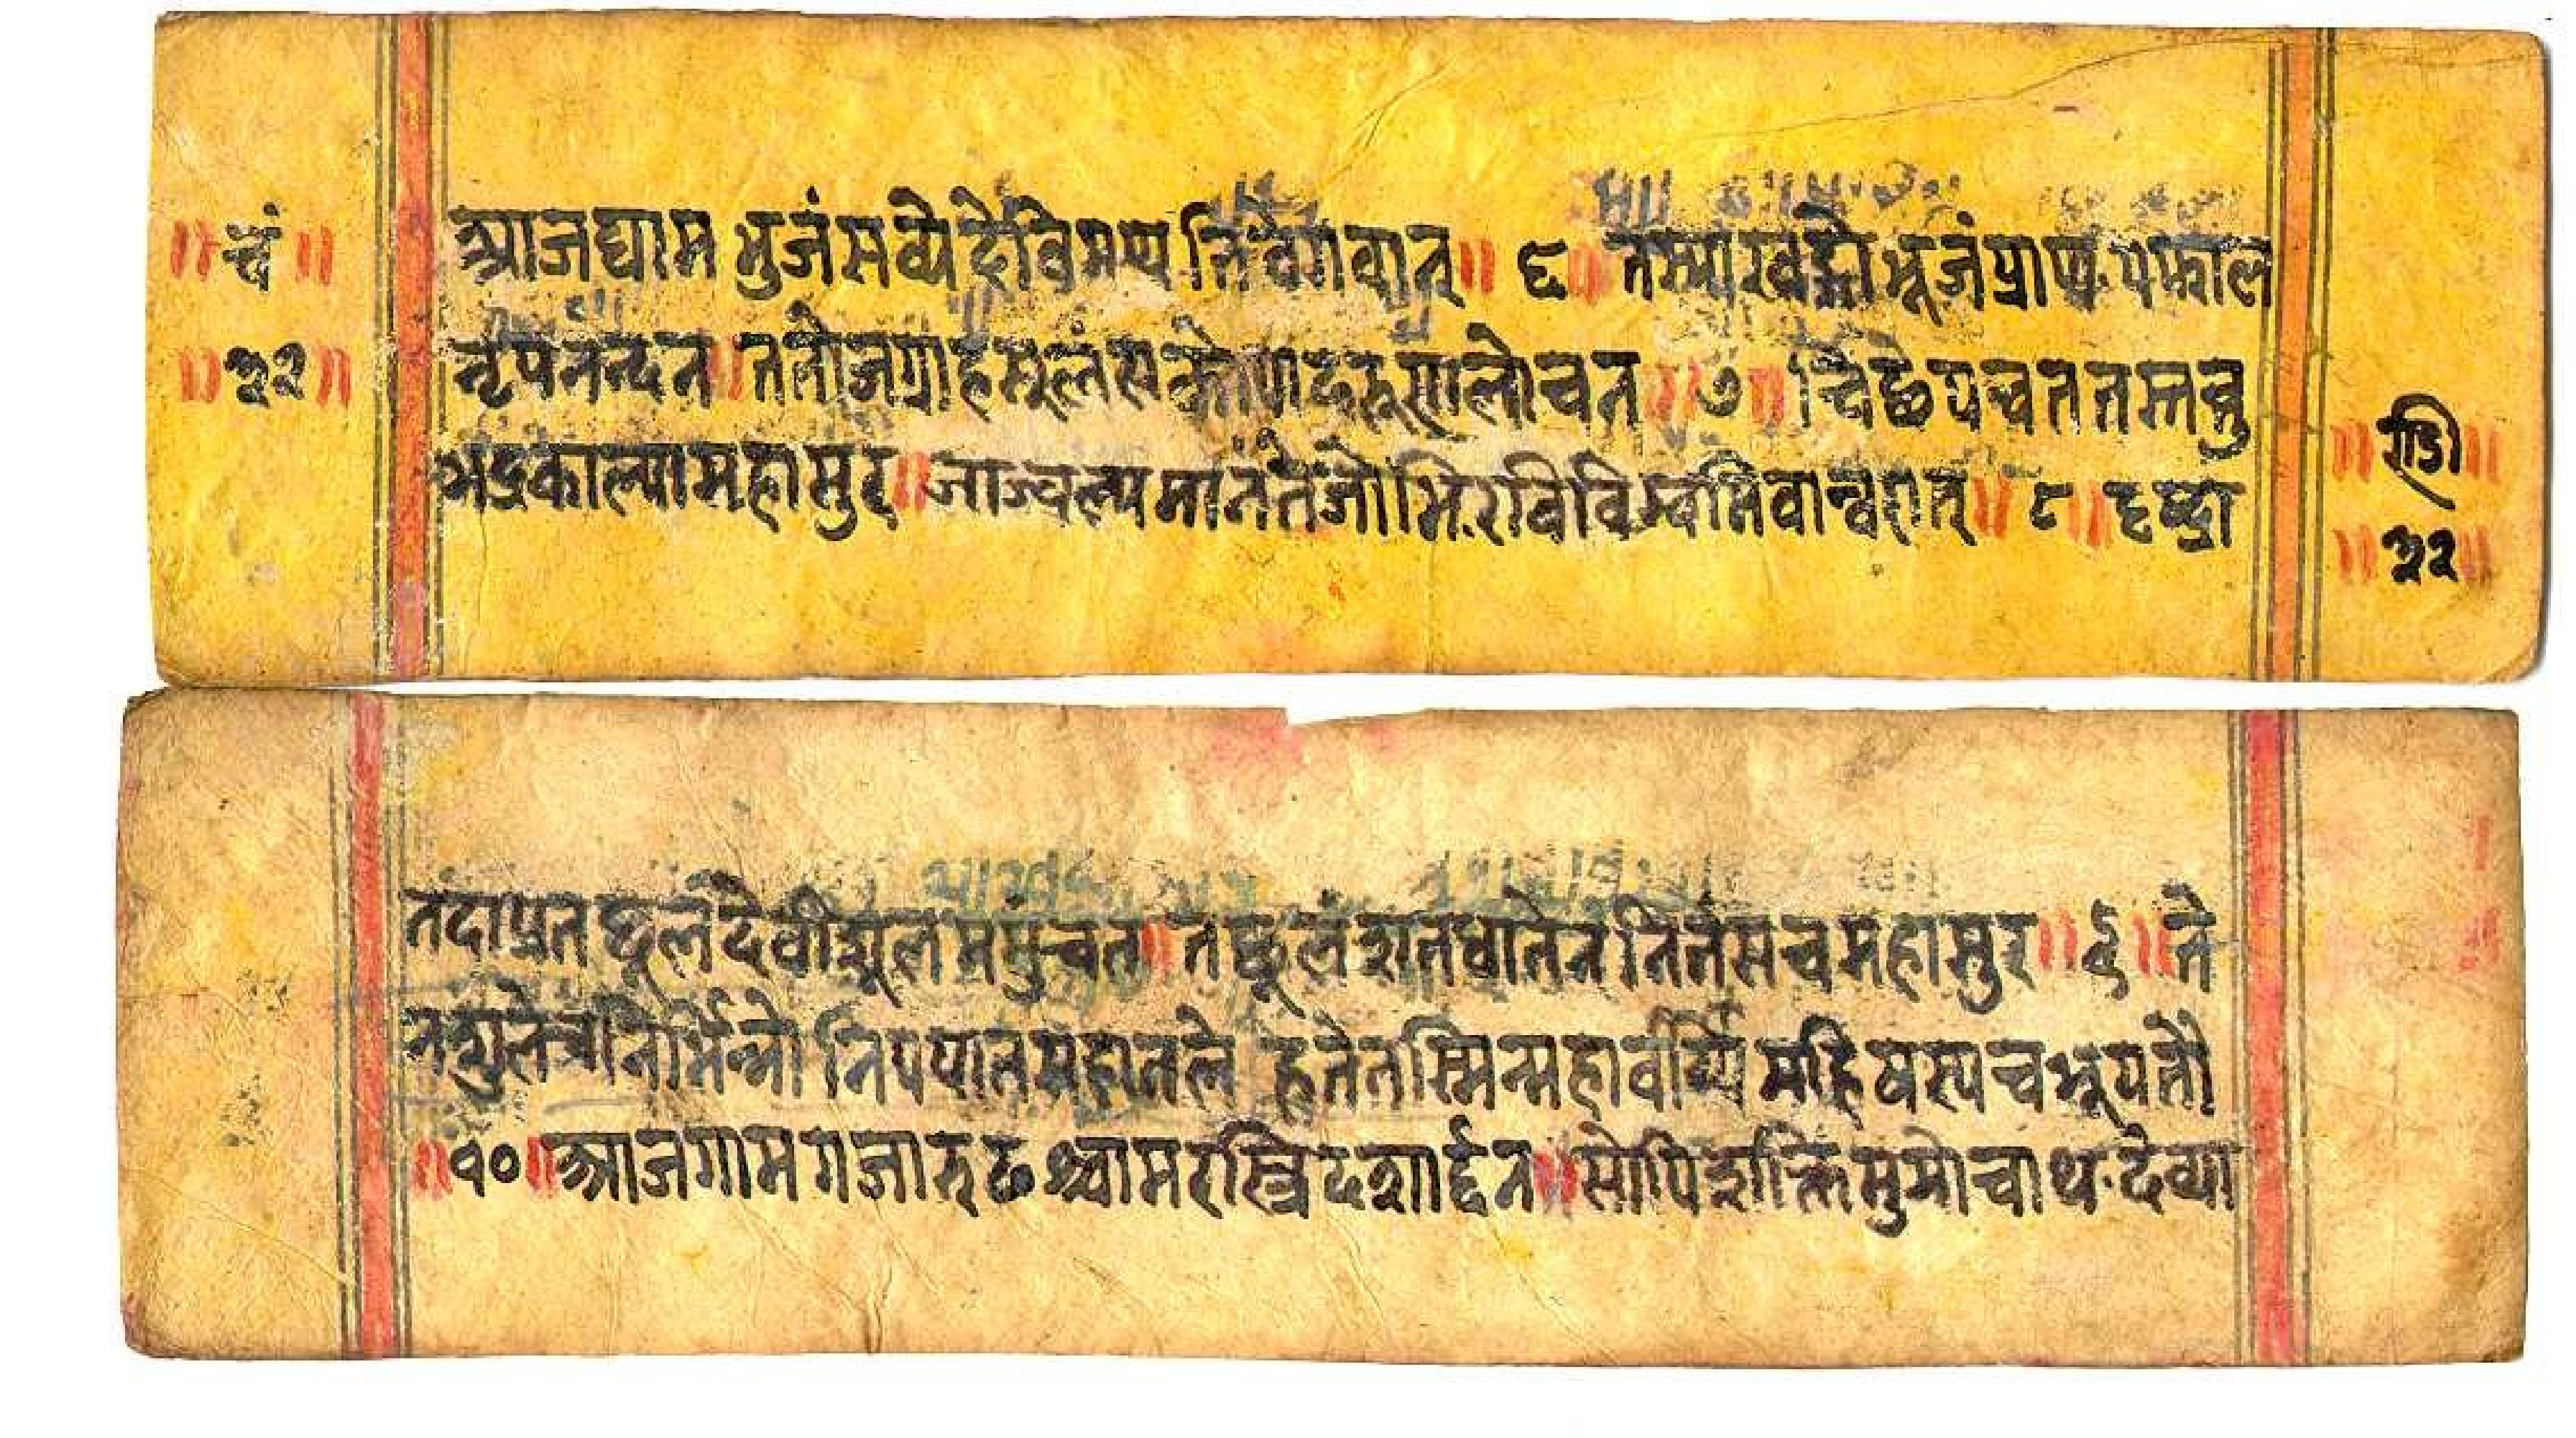 ॥ चं ॥
॥ ३२ ॥
आजघाम भुजंसव्येदेविमप्य तिवेगवान् ॥ ६ ॥ तस्याखङ्गोभूजंप्राप्य पफाल
नृपनन्दन ॥ ततोजग्राहसूलंस कोपादरूणालोचन ॥ ७ ॥ चिक्षेपचततस्तत्तु
भद्रकाल्यामहासुर ॥ जाज्वल्यमानंतेजोभि रविविम्वमिवाम्वरात् ॥ ८ ॥ दृष्ट्वा
॥ ण्डी ॥
॥ ३२ ॥
तदाप्रतछूलंदेवीशूलममुंचत ॥ तछूलंशतधातेन नितंसचमहासुर ॥ ९ ॥ ते
निपपातमहातले हतेतस्मिन्महावीर्य्ये महिषस्यचभूपतौ
॥ १० ॥ आजगामगजारुढश्चामरस्त्रिदशार्द्दन ॥ सोपिशक्तिमुमोचाथ देव्या